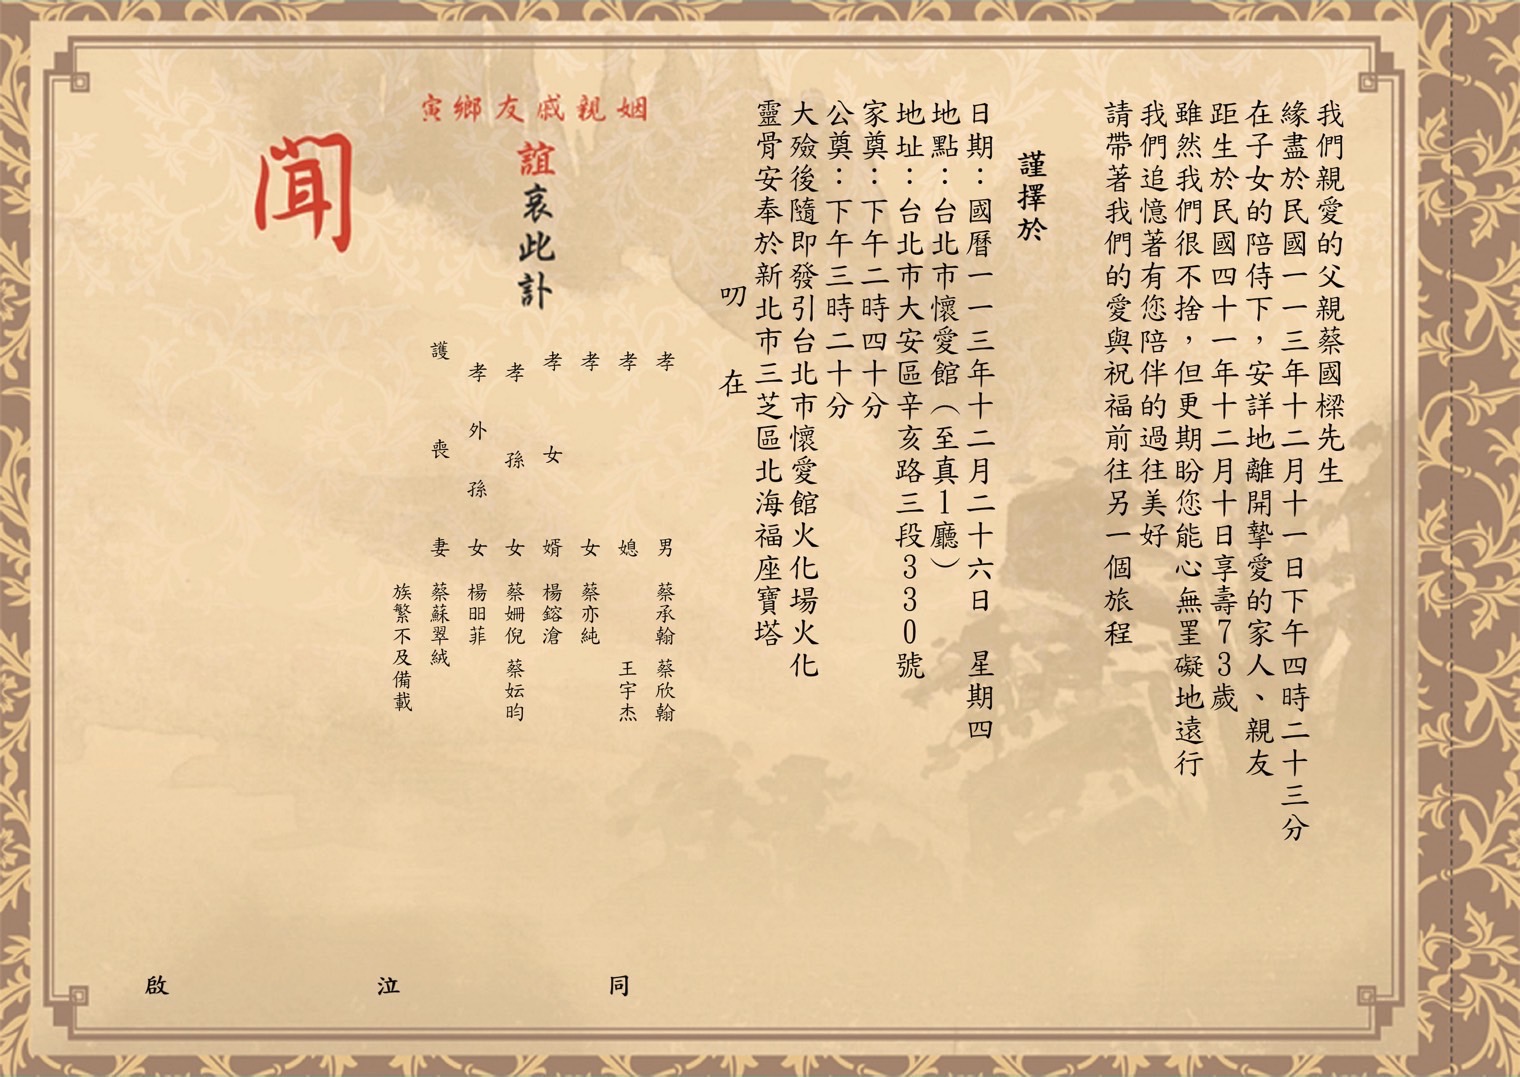 我們親愛的父親蔡國樑先生
緣盡於民國一一三年十二月十一日下午四時二十三分
在子女的陪侍下，安詳地離開摯愛的家人、親友
距生於民國四十一年十二月十日享壽73歲
雖然我們很不捨，但更期盼您能心無罣礙地遠行
我們追憶著有您陪伴的過往美好
請帶著我們的愛與祝福前往另一個旅程
謹擇於
日期：國曆一一三年十二月二十六日 星期四
地點：台北市懷愛館（至真1廳）
地址：台北市大安區辛亥路三段330號
家奠：下午二時四十分
公奠：下午三時二十分
大殮後隨即發引台北市懷愛館火化場火化
靈骨安奉於新北市三芝區北海福座寶塔
叨 在
姻親戚友鄉寅
誼哀此訃
聞
孝 男 蔡承翰 蔡欣翰
孝 媳 王宇杰
孝 女 蔡亦純
孝 女 婿 楊鎔滄
孝 孫 女 蔡姍倪 蔡妘昀
孝 外 孫 女 楊昍菲
護 喪 妻 蔡蘇翠絨
族繁不及備載
同 泣 啟